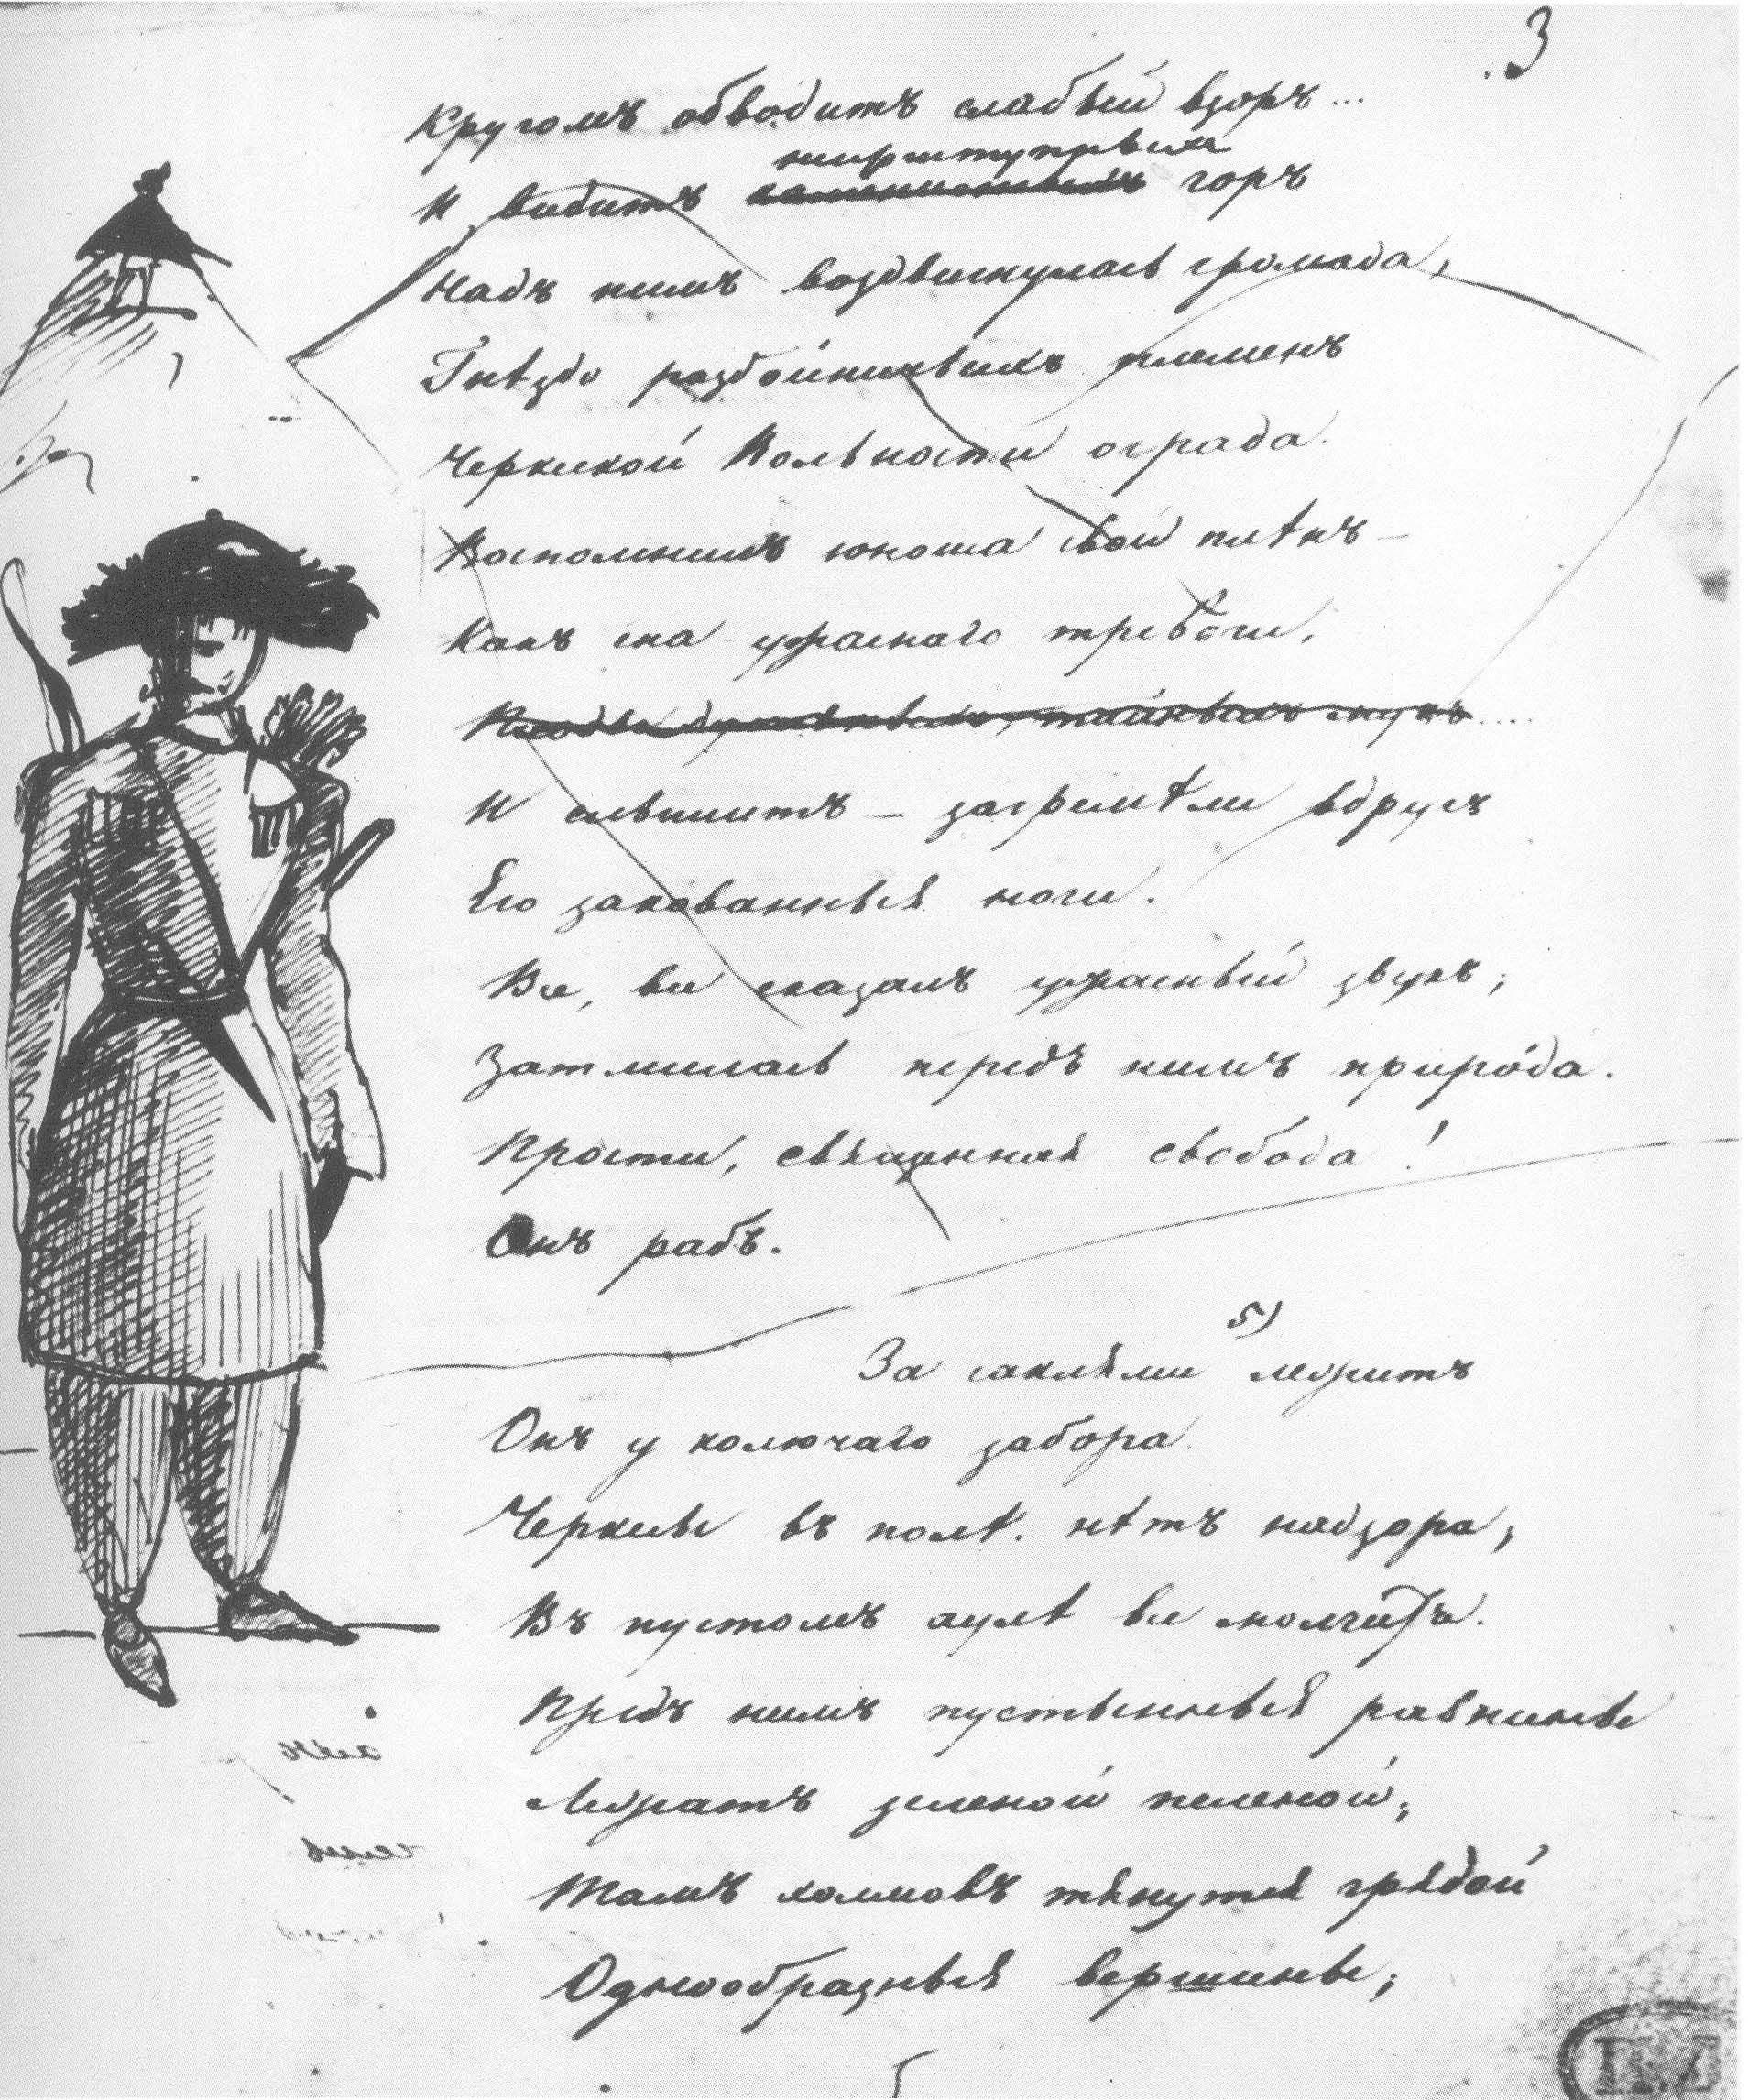 3
Кругомъ обводитъ слабый взоръ...
неприступныхъ
И видитъ горъ
Надъ нимъ воздвигнулась громада,
Гнѣздо разбойничьихъ племенъ
Черкеской Вольности ограда.
Воспомнилъ юноша свой плѣнъ —
Какъ сна ужаснаго тревоги,
И слышитъ — загремѣли вдругъ
Его закованныя ноги.
Все, все сказалъ ужасный звукъ;
Затмилась передъ нимъ природа.
Прости, священная свобода!
Онъ рабъ.
5)
За саклями лежитъ
Онъ у колючаго забора.
Черкесы въ полѣ. нѣтъ надзора;
Въ пустомъ аулѣ все молчитъ.
Предъ нимъ пустынныя равнины
Лежатъ зеленой пеленой;
Тамъ холмовъ тянутся грядой
Однообразныя вершины;